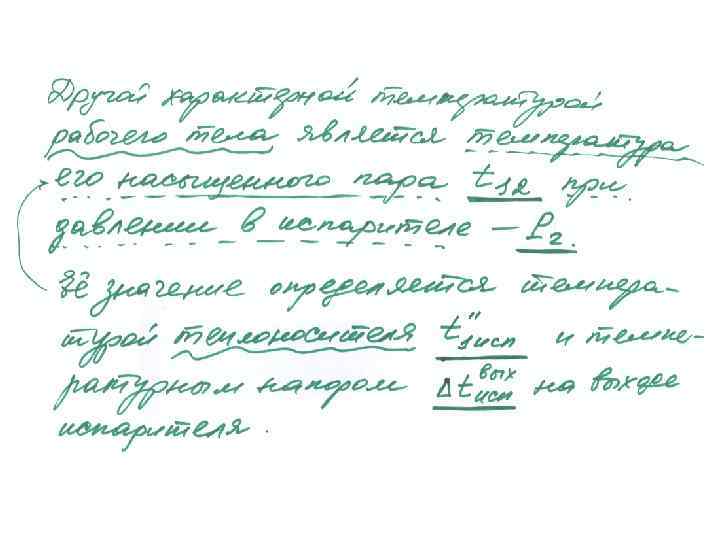 Другой характерной температурой
рабочего тела является температура
его насыщенного пара t₁₂ при
давлении в испарителе — P₂.
Её значение определяется темпера-
турой теплоносителя t″₁исп и темпе-
ратурным напором Δtисп^вых на выходе
испарителя.